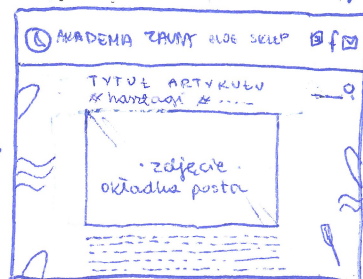 AKADEMIA ZAUPY BLOG SKLEP f
TYTUŁ ARTYKUŁU
# hasztagi # .....
· zdjęcie ·
okładka posta